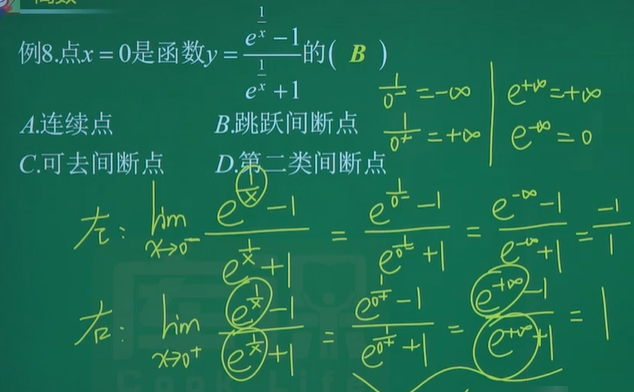 例8.点x=0是函数y=(e^(1/x)-1)/(e^(1/x)+1)的( B )
A.连续点 B.跳跃间断点
C.可去间断点 D.第二类间断点
1/0⁻=-∞ e^(+∞)=+∞
1/0⁺=+∞ e^(-∞)=0
左: lim x→0⁻ (e^(1/x)-1)/(e^(1/x)+1) = (e^(1/0⁻)-1)/(e^(1/0⁻)+1) = (e^(-∞)-1)/(e^(-∞)+1) = -1/1
右: lim x→0⁺ (e^(1/x)-1)/(e^(1/x)+1) = (e^(1/0⁺)-1)/(e^(1/0⁺)+1) = (e^(+∞)-1)/(e^(+∞)+1) = 1